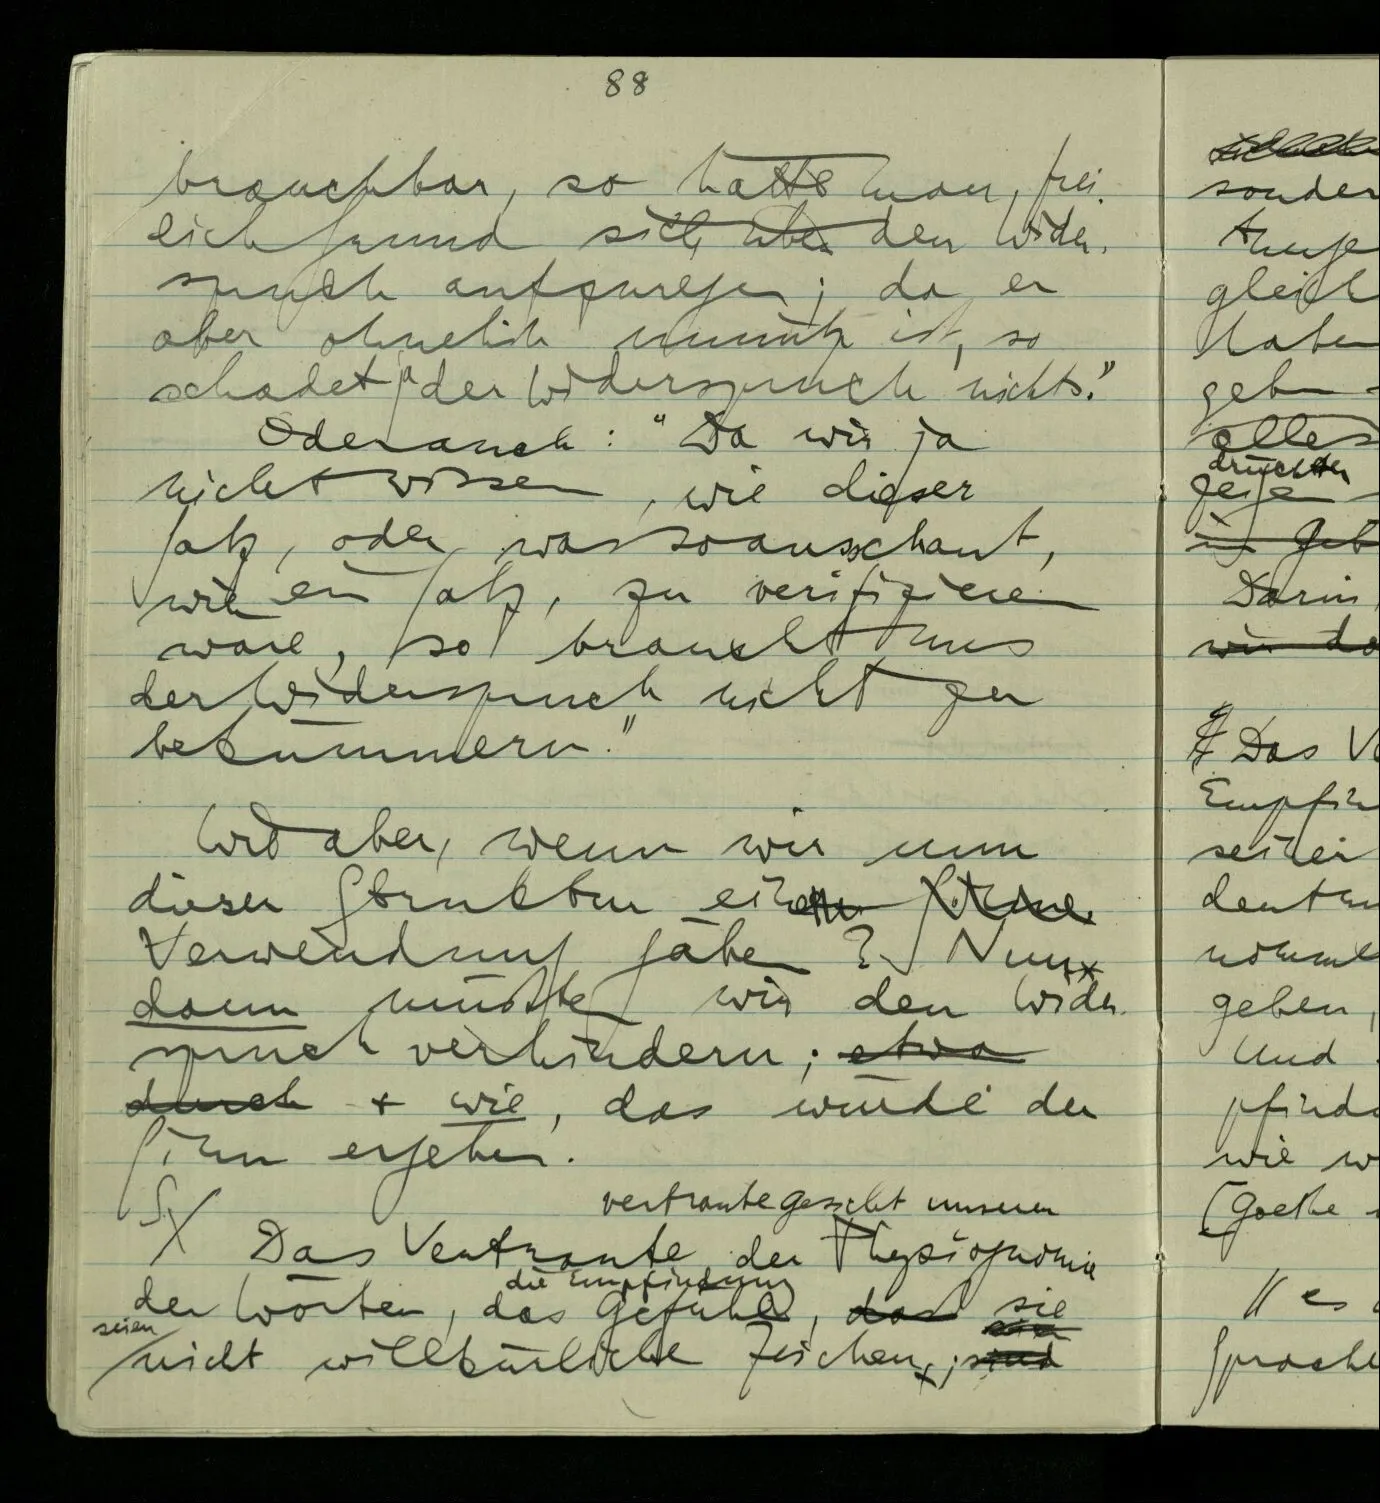 88
brauchbar, so hätte man, frei-
lich Grund sich über den Wider-
spruch aufzuregen; da er
aber ohnehin unnütz ist, so
schadet ja der Widerspruch nichts."
Oder auch: "Da wir ja
nicht wissen, wie dieser
Satz, oder was so ausschaut,
wie ein Satz, zu verifizieren
wäre, so braucht uns
der Widerspruch nicht zu
bekümmern."
Wie aber, wenn wir nun
dieser Struktur eine
Verwendung gäben? Nun,
dann müßten wir den Wider-
spruch verhindern; etwa
durch & wie, das würde der
Sinn ergeben.
S/
vertraute Gesicht unserer
Das Vertraute der Physiognomie
die Empfindung
der Wörter, das Gefühl, daß sie
seien
nicht willkürliche Zeichen; sind
sonder
gleich
haben
geben
alles
drückten
gegen
in Geb
Darin,
wir da
Das Ve
Empfin
seiner
geben,
Und
pfinde
wie w
(Goethe
// es
Sprache